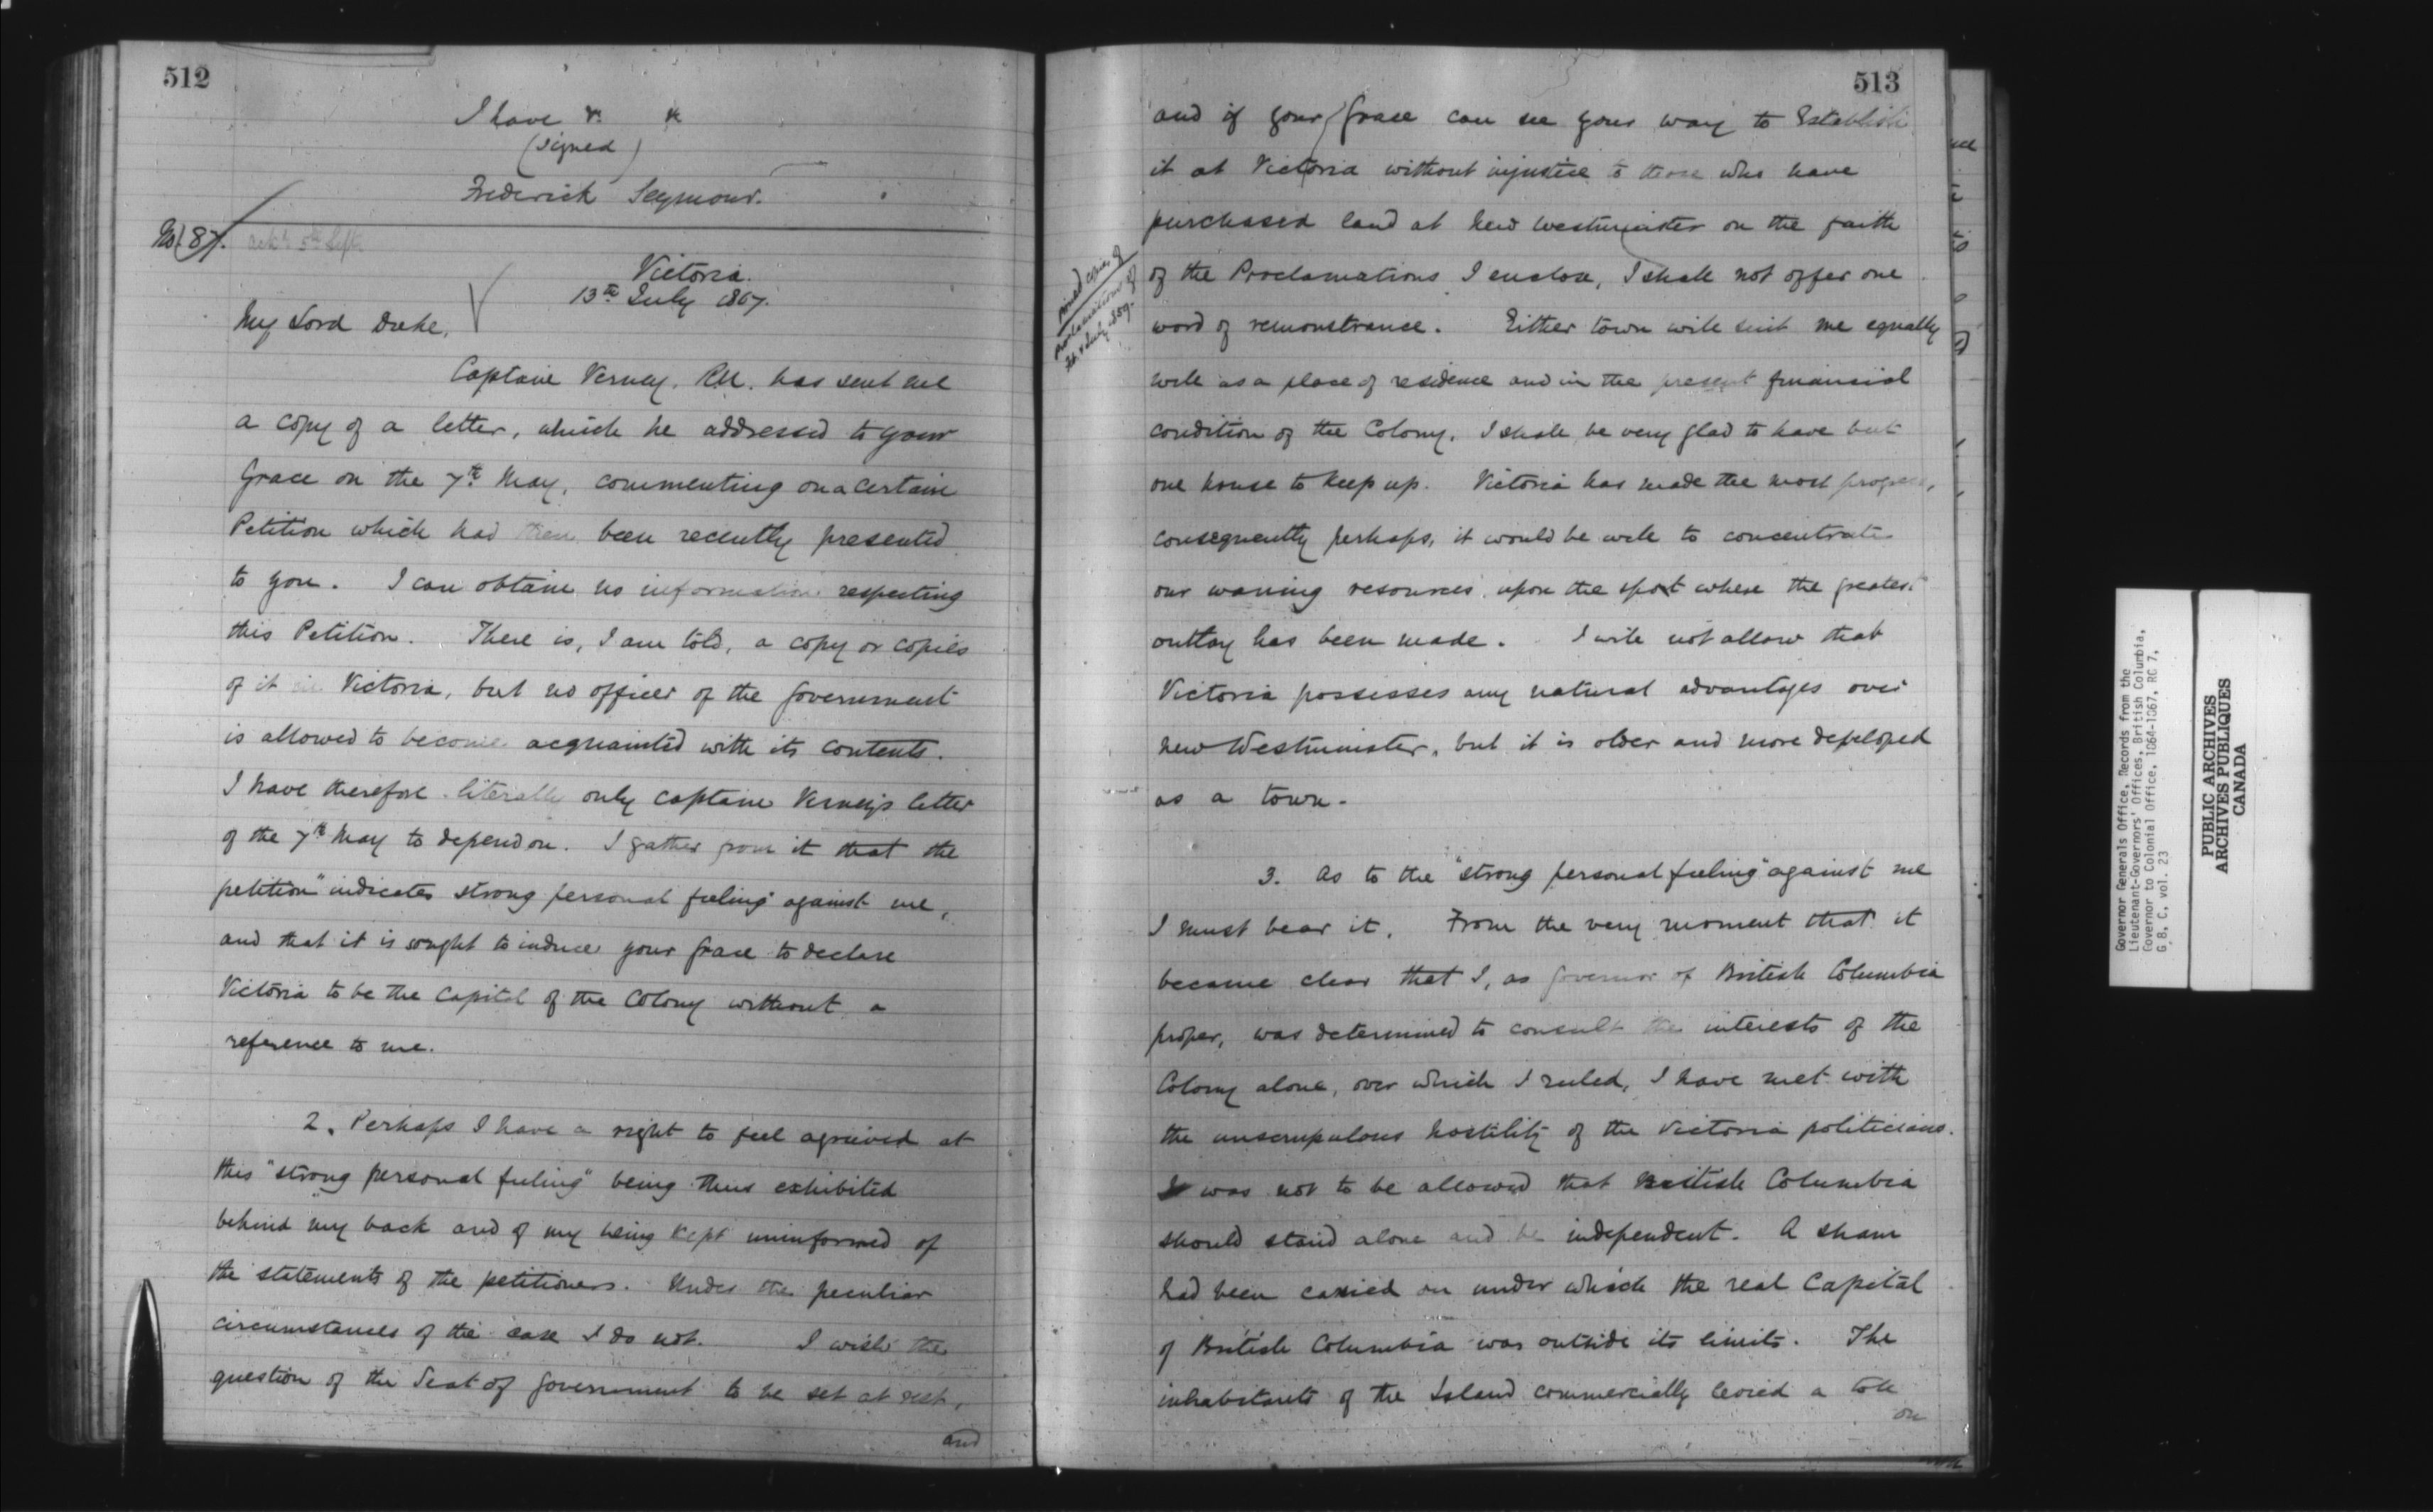 512
I have &c &c
(signed)
Frederick Seymour.
No. 87. ackd 5th Septr
Victoria.
13th July 1867.
My Lord Duke,
Captain Verney, R.N. has sent me
a copy of a letter, which he addressed to your
Grace on the 7th May, commenting on a certain
Petition which had then been recently presented
to you. I can obtain no information respecting
this Petition. There is, I am told, a copy or copies
of it in Victoria, but no officer of the Government
is allowed to become acquainted with its contents.
I have therefore literally only Captain Verney's letter
of the 7th May to depend on. I gather from it that the
petition "indicates strong personal feeling" against me,
and that it is sought to induce your Grace to declare
Victoria to be the Capital of the Colony without a
reference to me.
2. Perhaps I have a right to feel agrieved at
this "strong personal feeling" being thus exhibited
behind my back and of my being kept uninformed of
the statements of the petitioners. Under the peculiar
circumstances of the case I do not. I wish the
question of the Seat of Government to be set at rest,
and
513
and if your Grace can see your way to Establish
it at Victoria without injustice to those who have
purchased land at New Westminster on the faith
of the Proclamations I enclose, I shall not offer one
word of remonstrance. Either town will suit me equally
well as a place of residence and in the present financial
condition of the Colony, I shall be very glad to have but
one house to keep up. Victoria has made the most progress,
consequently perhaps, it would be well to concentrate
our waning resources upon the spot where the greatest
outlay has been made. I will not allow that
Victoria possesses any natural advantages over
New Westminster, but it is older and more developed
as a town.
3. As to the "strong personal feeling" against me
I must bear it. From the very moment that it
became clear that I, as Governor of British Columbia
proper, was determined to consult the interests of the
Colony alone, over which I ruled, I have met with
the unscrupulous hostility of the Victoria politicians.
It was not to be allowed that British Columbia
should stand alone and be independent. A sham
had been carried on under which the real Capital
of British Columbia was outside its limits. The
inhabitants of the Island commercially levied a toll
on
Printed copies of
Proclamations of
Feb. & July 1859.
Governor Generals Office, Records from the
Lieutenant-Governors' Offices, British Columbia,
Governor to Colonial Office, 1864-1867, RG 7,
G 8, C, vol. 23
PUBLIC ARCHIVES
ARCHIVES PUBLIQUES
CANADA